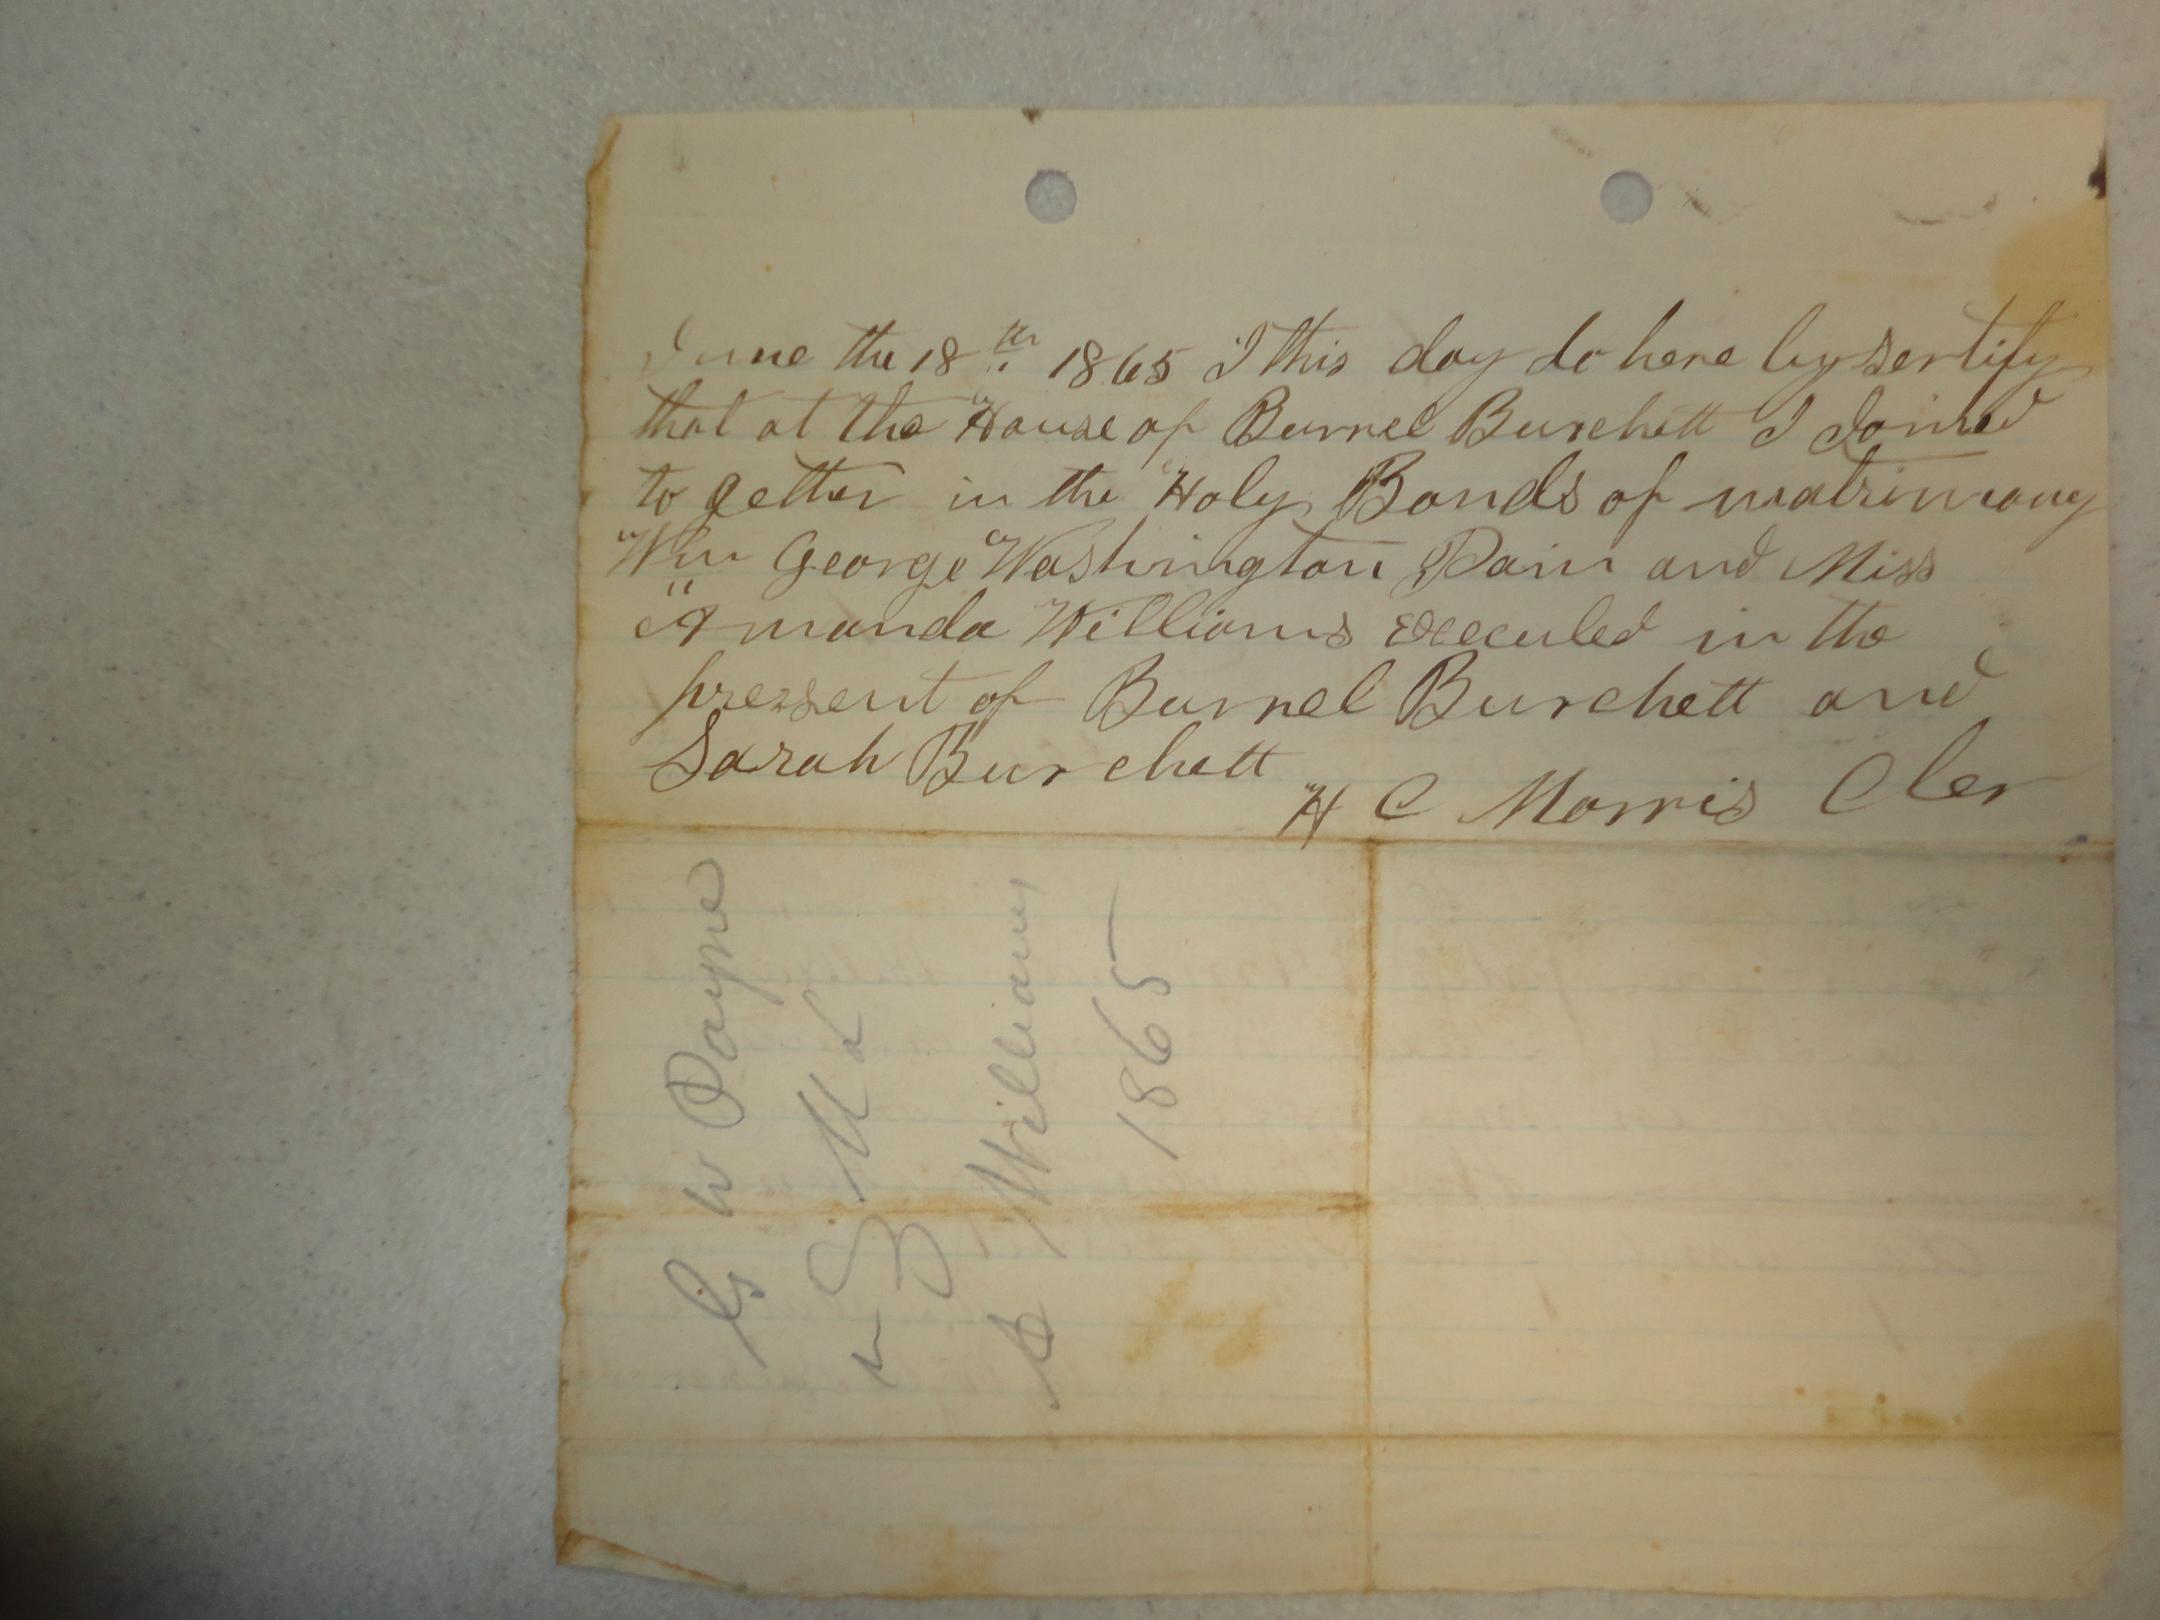 June the 18th 1865 I this day do here by sertify
that at the House of Burrel Burchett I Joined
to getther in the Holy Bonds of matrimony
Wm George Washington Pain and Miss
Amanda Williams executed in the
pressent of Burrel Burchett and
Sarah Burchett
H C Morris Cler
G W Payne
M L
A Williams
1865